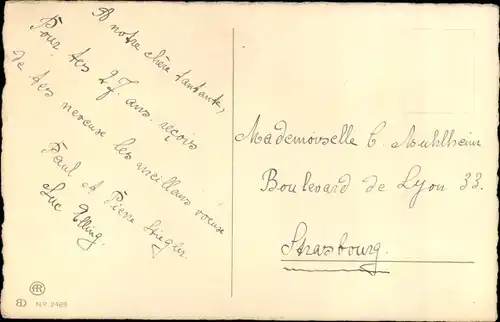 A notre chère tantante,
Pour tes 27 ans. reçois
de tes neveuse les meilleurs voeuse
Paul et Pierre Stiegler
Luc Elling.
Mademoiselle C. Muhlheim
Boulevard de Lyon 33.
Strasbourg.
AR
BD NR 2469